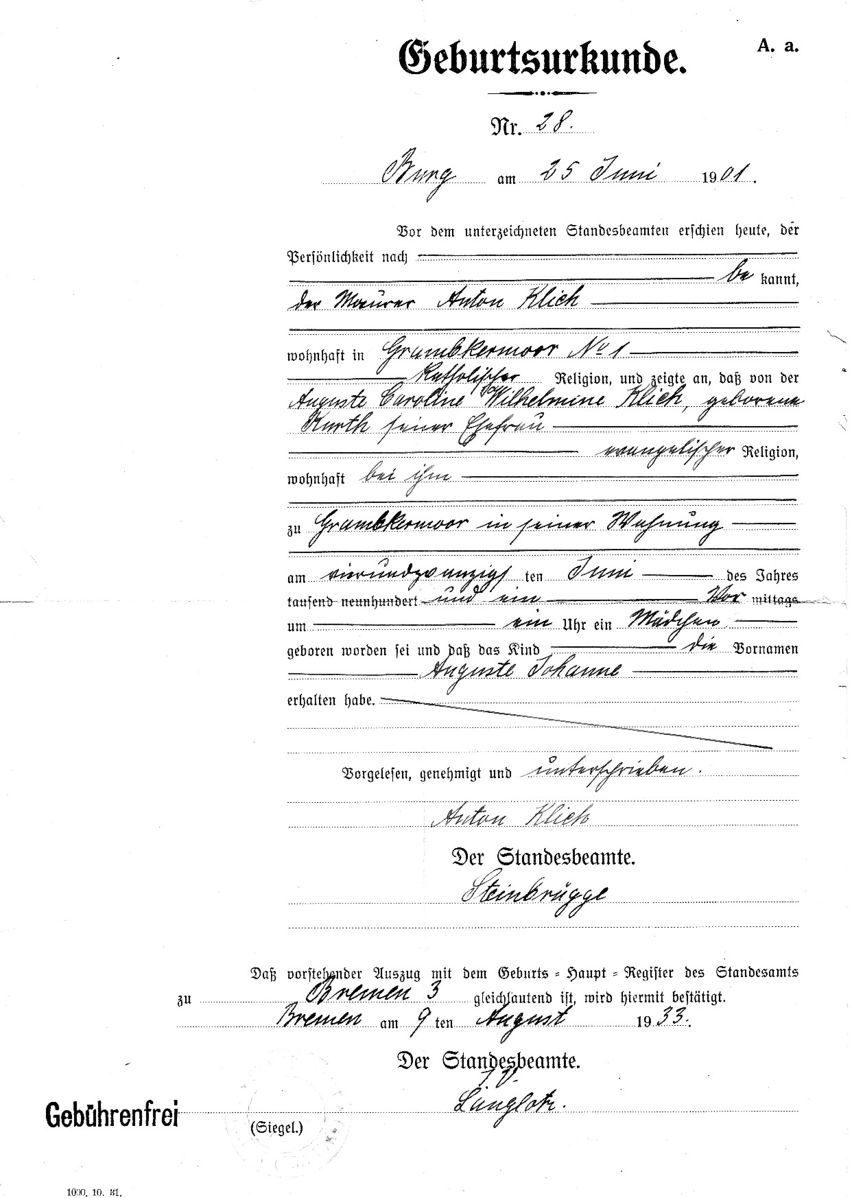 A. a.
Geburtsurkunde.
Nr. 28.
Burg am 25 Juni 1901.
Vor dem unterzeichneten Standesbeamten erschien heute, der
Persönlichkeit nach
be kannt,
der Maurer Anton Klich
wohnhaft in Grambkermoor No 1
katholischer Religion, und zeigte an, daß von der
Auguste Caroline Wilhelmine Klich, geborene
Kurth seiner Ehefrau
evangelischer Religion,
wohnhaft bei ihm
zu Grambkermoor in seiner Wohnung
am vierundzwanzigs ten Juni des Jahres
tausend neunhundert und ein Vor mittags
um ein Uhr ein Mädchen
geboren worden sei und daß das Kind die Vornamen
Auguste Johanne
erhalten habe.
Vorgelesen, genehmigt und unterschrieben.
Anton Klich
Der Standesbeamte.
Steinbrügge
Daß vorstehender Auszug mit dem Geburts-Haupt-Register des Standesamts
zu Bremen 3 gleichlautend ist, wird hiermit bestätigt.
Bremen am 9 ten August 1933.
Der Standesbeamte.
J.V.
Gebührenfrei
(Siegel.)
1000. 10. 31.